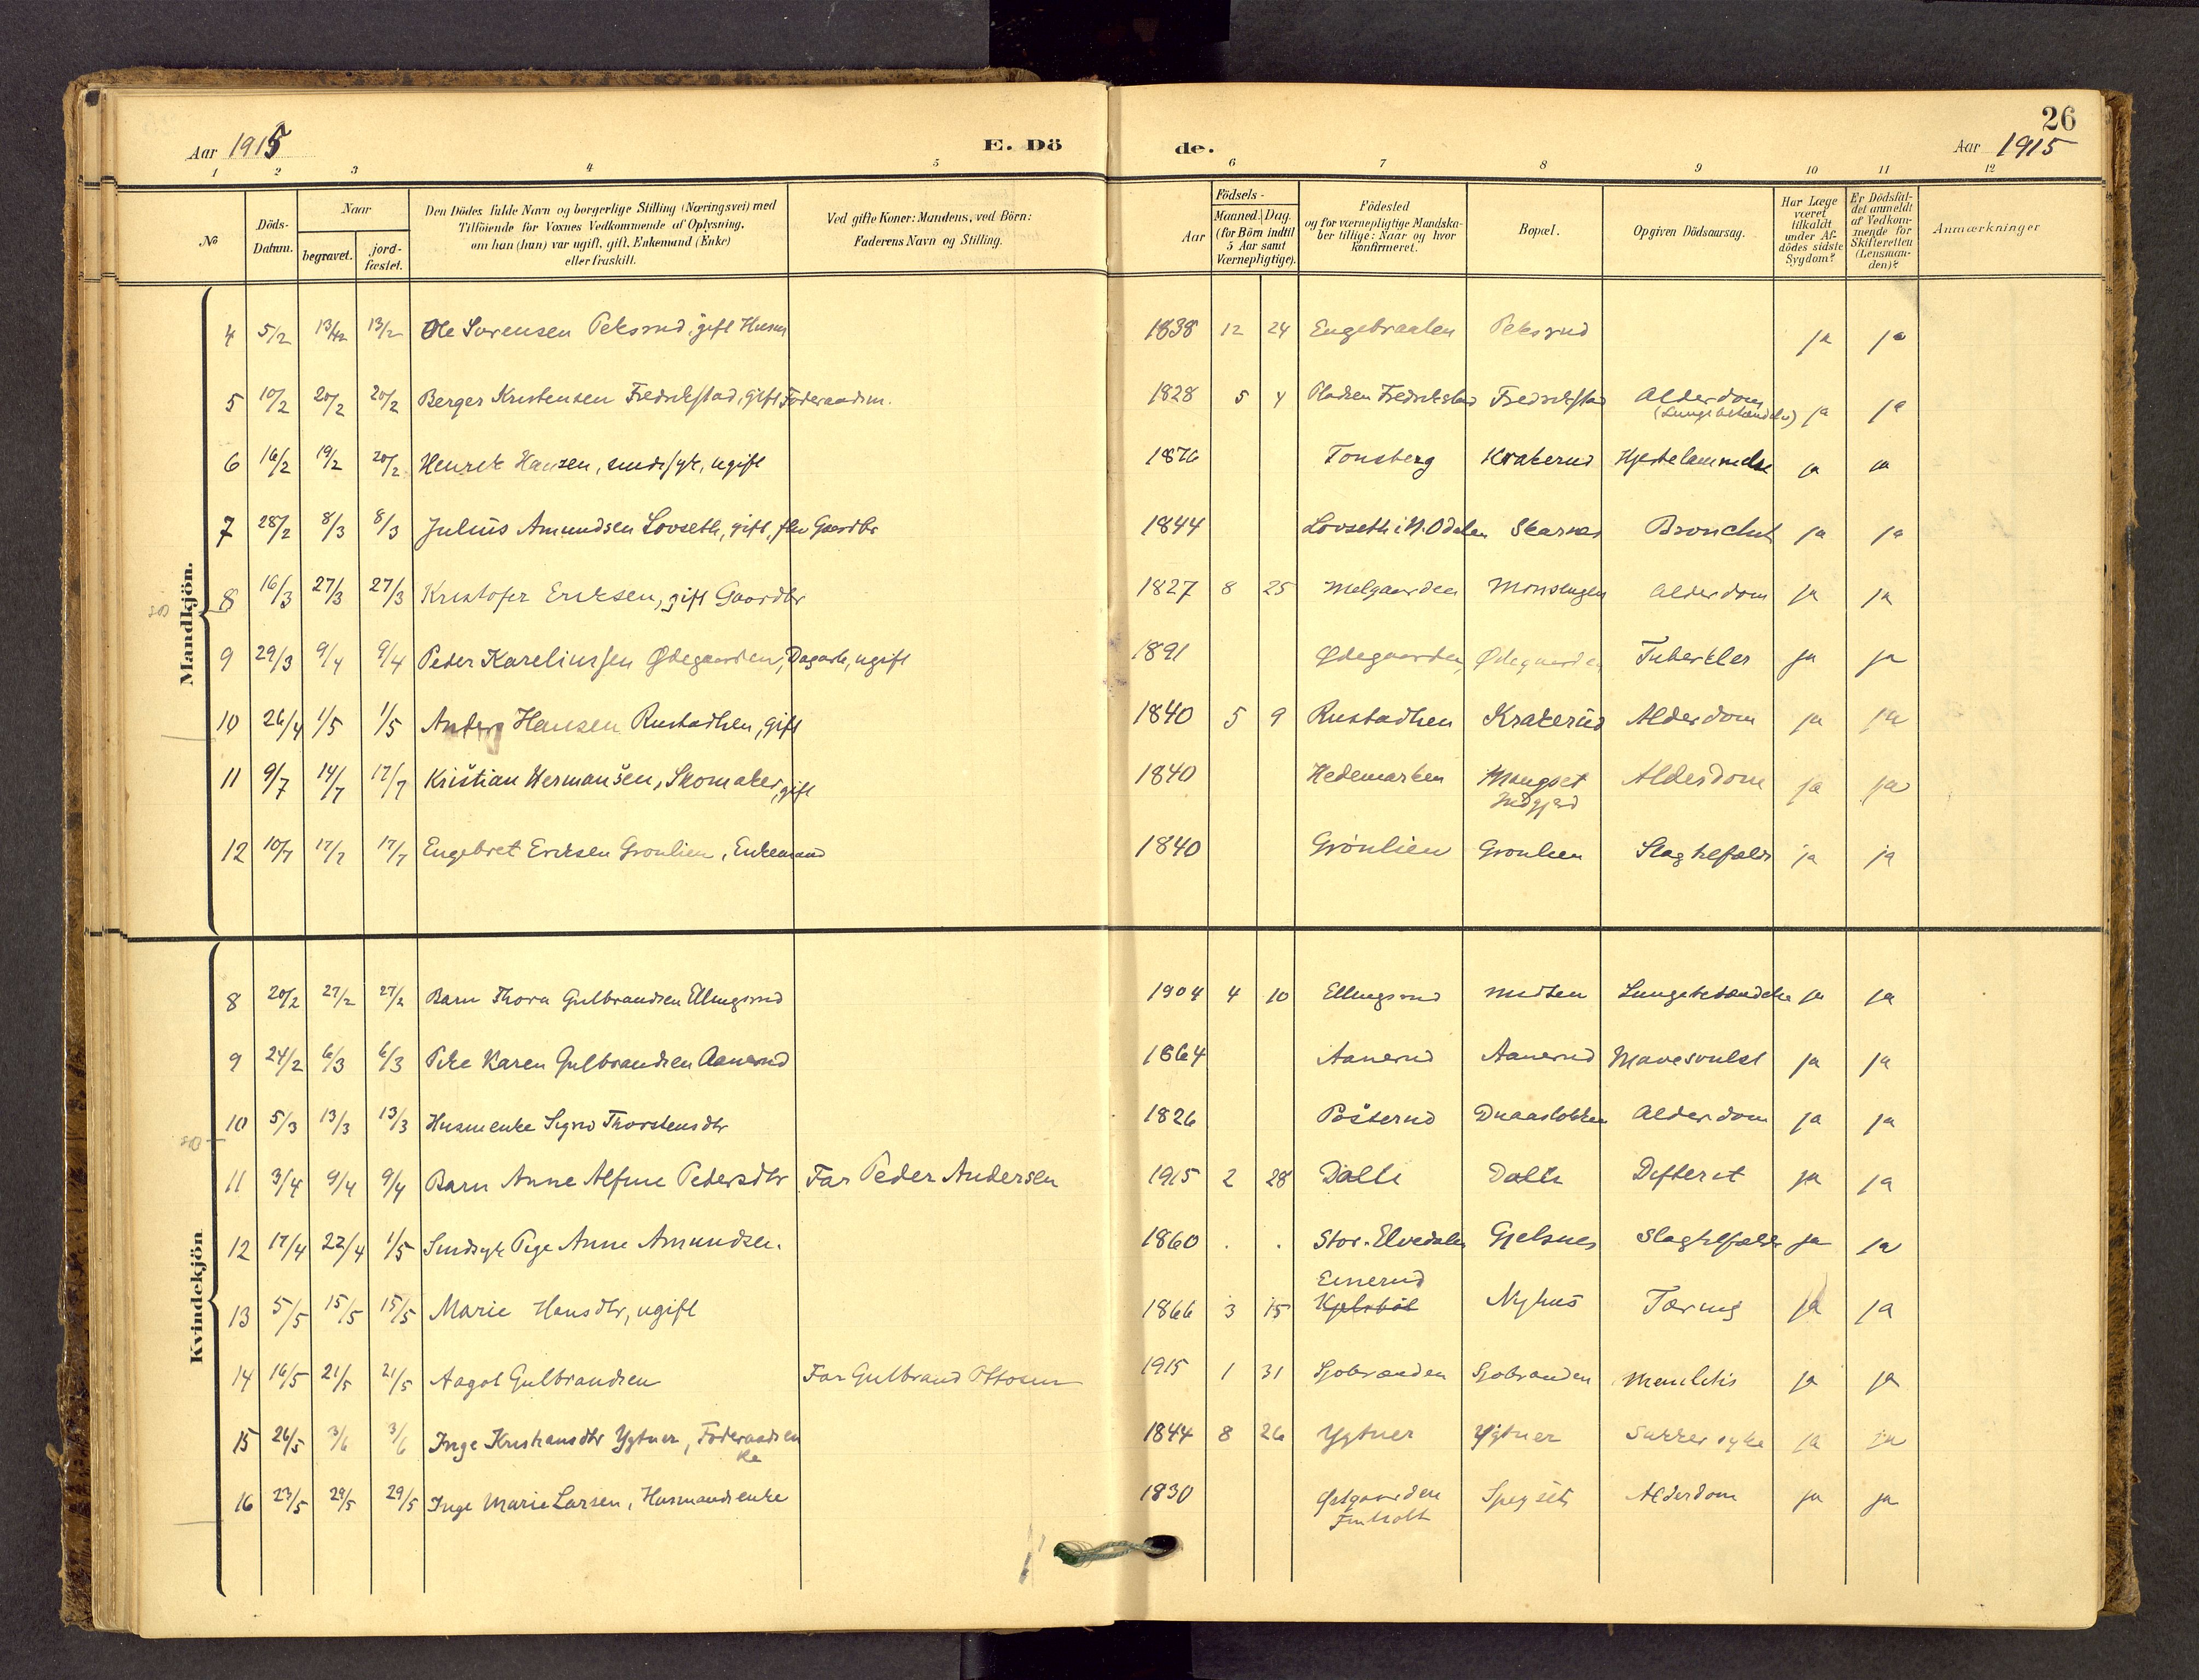 26
Aar 1915
E. Dö
de.
Aar 1915
1 2 3 4 5 6 7 8 9 10 11 12
№
Döds-Datum.
Naar
begravet.
jord-fæstet.
Den Dödes fulde Navn og borgerlige Stilling (Næringsvei) med
Tilföiende for Voxnes Vedkommende af Oplysning,
om han (hun) var ugift, gift, Enkemand (Enke)
eller fraskilt.
Ved gifte Koner: Mandens, ved Börn:
Faderens Navn og Stilling.
Aar
Födsels-
Maaned. Dag.
(for Börn indtil
5 Aar samt
Værnepligtige).
Födested
og for værnepligtige Mandska-
ber tillige: Naar og hvor
konfirmeret.
Bopæl.
Opgiven Dödsaarsag.
Har Læge
været
tilkaldt
under Af-
dödes sidste
Sygdom?
Er Dödsfal-
det anmeldt
af Vedkom-
mende for
Skifteretten
(Lensman-
den)?
Anmærkninger
Mandkjön.
4 5/2 13/2 13/2 Ole Sorensen Peksrud, gift Husm 1838 12 24 Engebraaten Peksrud ja ja
5 10/2 20/2 20/2 Berger Kristensen Fredrikstad, gift Föderaadsm. 1828 5 4 Pladsen Fredrikstad Fredrikstad Alderdom ja ja
6 16/2 19/2 20/2 Henrik Hansen, sindssyk, ugift 1876 Tonsberg Krakerud Hjertelammelse ja ja
7 28/2 8/3 8/3 Julius Amundsen Lovseth, gift, fhv Gaardbr 1844 Lovseth i N. Odalen Skarnes Bronchit ja ja
8 16/3 27/3 27/3 Kristofer Eriksen, gift Gaardbr 1827 8 25 Melgaarden Monsengen Alderdom ja ja
9 29/3 9/4 9/4 Peder Kareliussen Ødegaarden, Dagarb, ugift 1891 Ødegaarden Ødegaarden Tuberkler ja ja
10 26/4 1/5 1/5 Anders Hansen Rustadhen, gift 1840 5 9 Rustadhen Krakerud Alderdom ja ja
11 9/7 14/7 17/7 Kristian Hermansen, Skomaker, gift 1840 Hedemarken Mangset Alderdom ja ja
12 10/7 17/7 17/7 Engebret Eriksen Gronlien, Enkemand 1840 Grönlien Gronlien Slagtilfælde ja ja
Kvindekjön
8 20/2 27/2 27/2 Barn Thora Gulbrandsen Ellingsrud 1904 4 10 Ellingsrud Midten Lungebetændelse ja ja
9 24/2 6/3 6/3 Pike Karen Gulbrandsen Aanerud 1864 Aanerud Aanerud Mavesvulst ja ja
10 5/3 13/3 13/3 Husmenke Sigrid Thorstensdtr 1826 Posterud Alderdom ja ja
11 3/4 9/4 9/4 Barn Anne Alfine Pedersdtr Far Peder Andersen 1915 2 28 Dalti Dalti Difterit ja ja
12 17/4 22/4 1/5 Sindsyk Pige Anne Amundsen. 1860 . . Stor-Elvedalen Gjelsnes Slagtilfælde ja ja
13 5/5 15/5 15/5 Marie Hansdtr, ugift 1866 3 15 Einerud Nyhus Tæring ja ja
14 16/5 21/5 21/5 Aagot Gulbrandsen Far Gulbrand Ottosen 1915 1 31 Sjobranden Sjobranden ja ja
15 26/5 3/6 3/6 Inge Kristiansdtr Ygtner, Föderaadsen
ke 1844 8 26 Ygtner Ygtner Sukkersyke ja ja
16 23/5 29/5 29/5 Inge Marie Larsen, Husmandsenke 1830 Østgaarden Alderdom ja ja